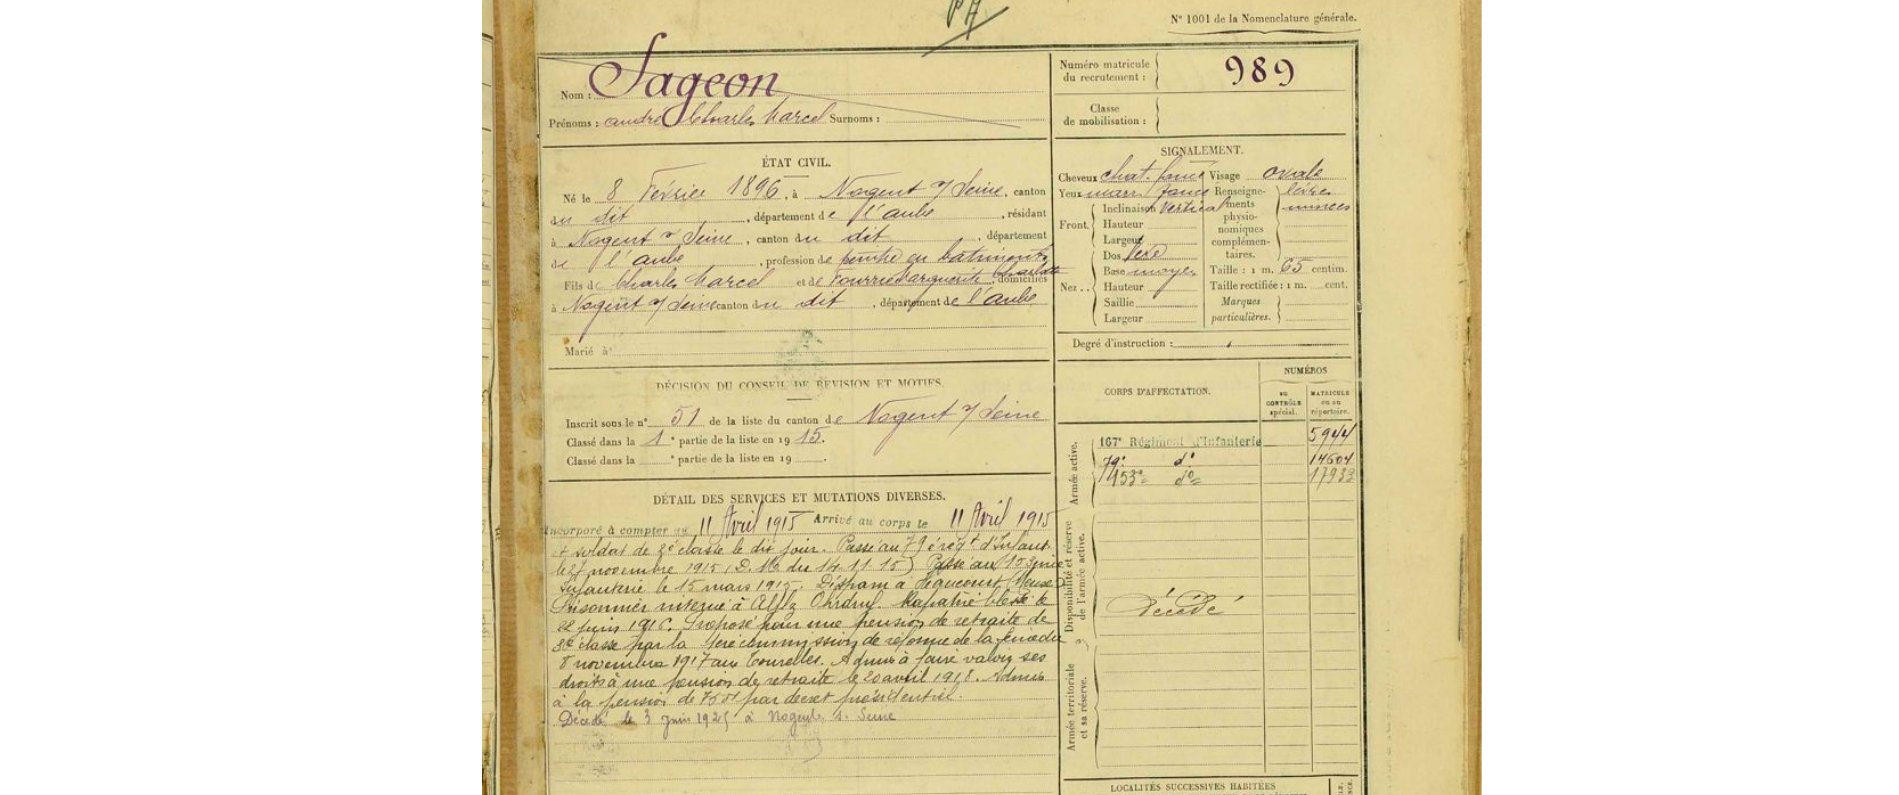 N° 1001 de la Nomenclature générale.
Nom : Sageon
Prénoms : andré Charles Marcel Surnoms :
Numéro matricule du recrutement : 989
Classe de mobilisation :
ÉTAT CIVIL.
Né le 8 Février 1896, à Nogent s/ Seine, canton
du dit, département de l'aube, résidant
à Nogent s/ Seine, canton du dit, département
de l'aube, profession de peintre en batiments
Fils de Charles Marcel et de Fourrier Marguerite Charlotte, domiciliés
à Nogent s/ Seine canton du dit, département de l'aube
Marié à
SIGNALEMENT.
Cheveux chat. foncé Visage ovale
Yeux marr. foncé Renseignements physionomiques complémentaires. lèvres minces
Front. Inclinaison Vertical
Hauteur
Largeur
Nez.. Dos
Base moyen
Hauteur
Saillie
Largeur
Taille : 1 m. 65 centim.
Taille rectifiée : 1 m. cent.
Marques particulières.
Degré d'instruction :
DÉCISION DU CONSEIL DE REVISION ET MOTIFS.
Inscrit sous le n° 51 de la liste du canton de Nogent s/ Seine
Classé dans la 1e partie de la liste en 1915.
Classé dans la e partie de la liste en 19 .
CORPS D'AFFECTATION.
NUMÉROS
au CONTRÔLE spécial.
MATRICULE ou au répertoire.
Armée active.
167e Régiment d'Infanterie 5944
79e d° 14604
153e d° 17933
Disponibilité et réserve de l'armée active.
Décédé
Armée territoriale et sa réserve.
DÉTAIL DES SERVICES ET MUTATIONS DIVERSES.
Incorporé à compter du 11 Avril 1915 Arrivé au corps le 11 Avril 1915
et soldat de 2e classe le dit jour. Passé au 79e régt d'Infant.
le 27 novembre 1915 (D. M. du 14.11.15) Passé au 153eme
Infanterie le 15 mars 1915. Disparu à Haucourt (Meuse)
Prisonnier interné à Ohrdruf. Rapatrié blessé le
22 juin 1916. Proposé pour une pension de retraite de
classe par la commission de réforme de la Seine du
8 novembre 1917 aux Tourelles. Admis à faire valoir ses
droits à une pension de retraite le 20 avril 1918. Admis
à la pension de par décret présidentiel.
Décédé le 3 juin 1925 à Nogent s. Seine
LOCALITÉS SUCCESSIVES HABITÉES